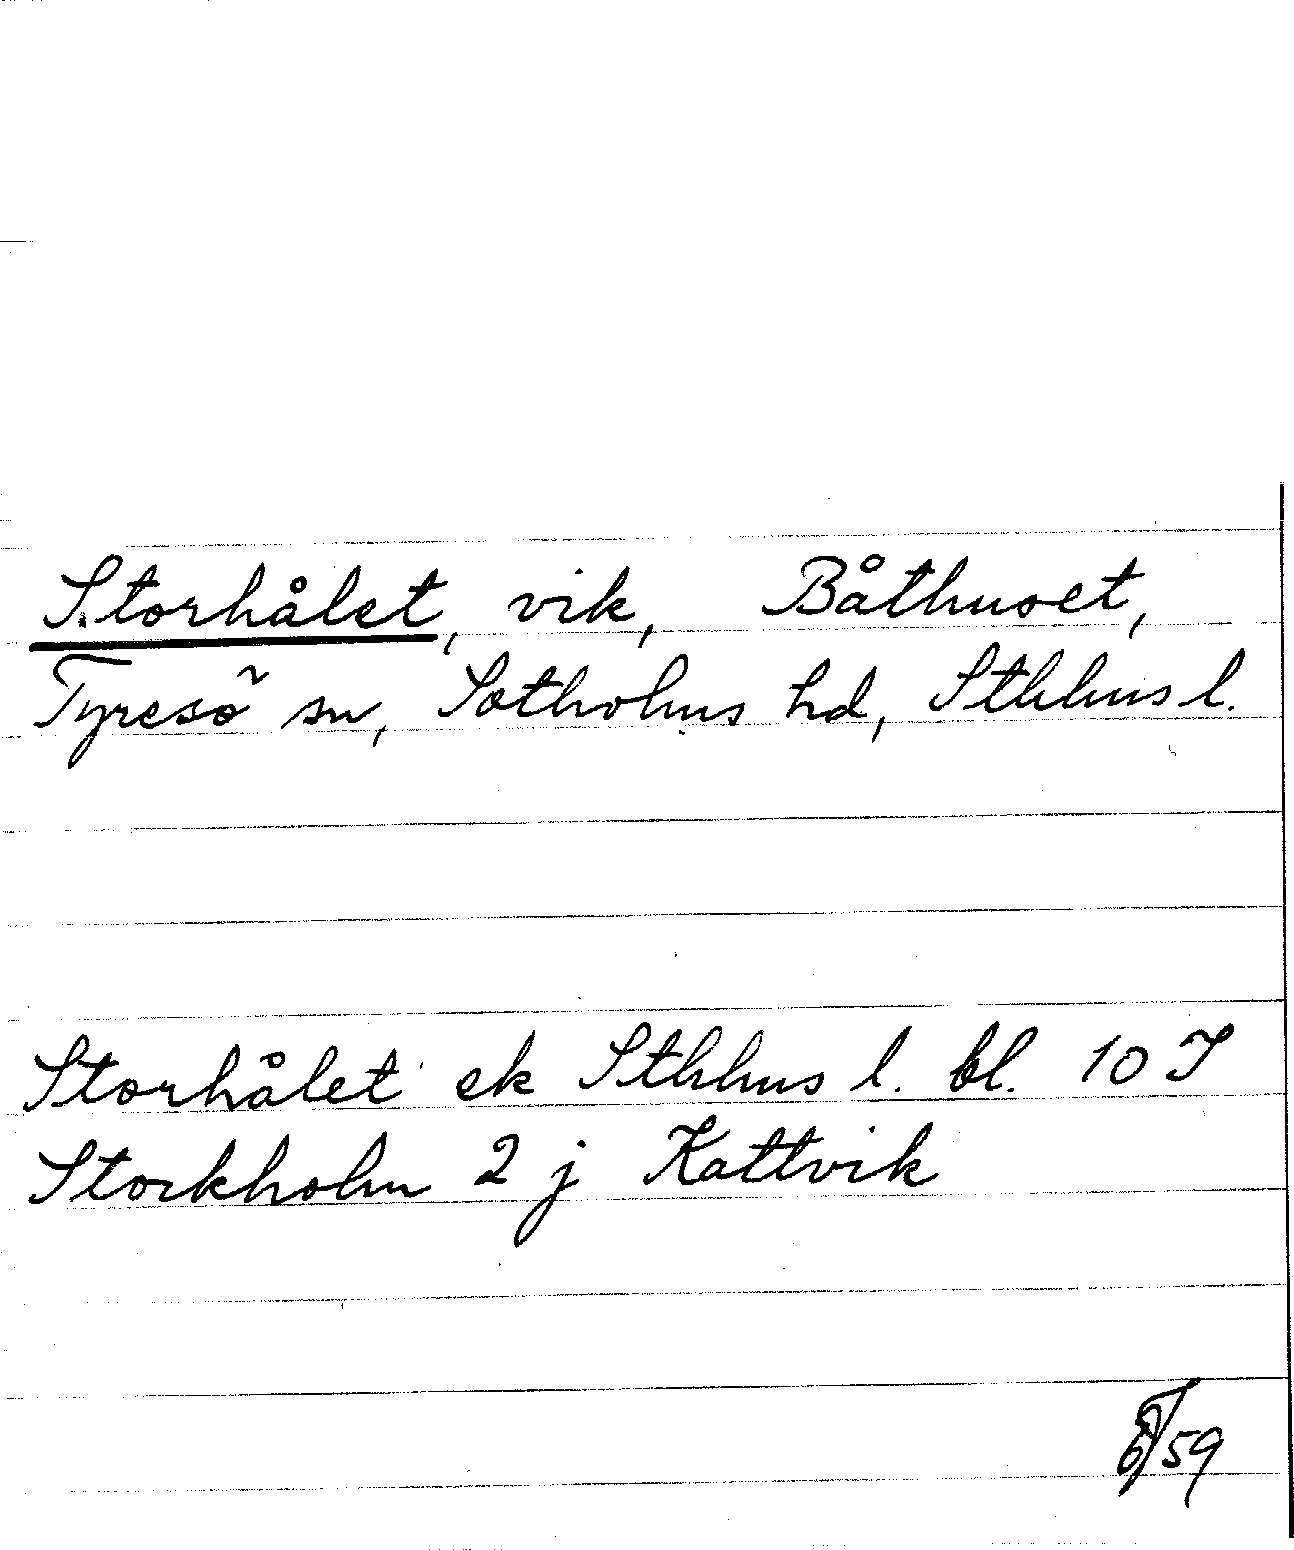 Storhålet, vik, Båthuset,
Tyresö sn, Sotholms hd, Sthlms l.
Storhålet ek Sthlms l. bl. 10 I
Stockholm 2 j Kattvik
/59